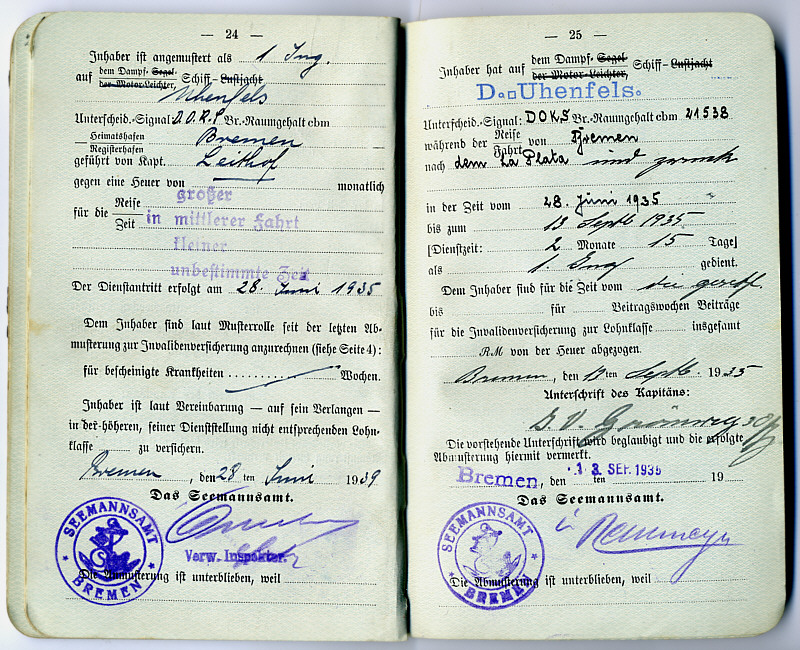 — 24 —
Inhaber ist angemustert als 1 Ing.
auf dem Dampf- Segel- Schiff - Lustjacht
der Motor-Leichter,
Uhenfels
Unterscheid.-Signal: D.O.K.S Br.-Raumgehalt cbm
Heimatshafen Bremen
Registerhafen
geführt von Kapt. Leithof
gegen eine Heuer von monatlich
großer
für die Reise
Zeit in mittlerer Fahrt
kleiner
unbestimmte Zeit
Der Dienstantritt erfolgt am 28. Juni 1935
Dem Inhaber sind laut Musterrolle seit der letzten Ab-
musterung zur Invalidenversicherung anzurechnen (siehe Seite 4):
für bescheinigte Krankheiten Wochen.
Inhaber ist laut Vereinbarung — auf sein Verlangen —
in der höheren, seiner Dienststellung nicht entsprechenden Lohn-
klasse zu versichern.
Bremen, den 28 ten Juni 1939
Das Seemannsamt.
Verw. Inspektor.
SEEMANNSAMT
BREMEN
Die Anmusterung ist unterblieben, weil
— 25 —
Inhaber hat auf dem Dampf- Segel- Schiff - Lustjacht
der Motor-Leichter,
D. Uhenfels.
Unterscheid.-Signal: DOKS Br.-Raumgehalt cbm 21538
während der Reise
Fahrt von Bremen
nach dem La Plata und zurück
in der Zeit vom 28. Juni 1935
bis zum 13 Septb 1935
[Dienstzeit: 2 Monate 15 Tage]
als 1. Ing gedient.
Dem Inhaber sind für die Zeit vom die gesetzl.
bis für Beitragswochen Beiträge
für die Invalidenversicherung zur Lohnklasse insgesamt
RM von der Heuer abgezogen.
Bremen, den 13 ten Septb. 1935
Unterschrift des Kapitäns:
Die vorstehende Unterschrift wird beglaubigt und die erfolgte
Abmusterung hiermit vermerkt.
Bremen, den 13. SEP. 1935 ten 19
Das Seemannsamt.
SEEMANNSAMT
BREMEN
Die Abmusterung ist unterblieben, weil